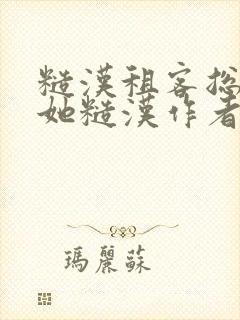 糙漢租客總
她糙漢作者
瑪麗蘇